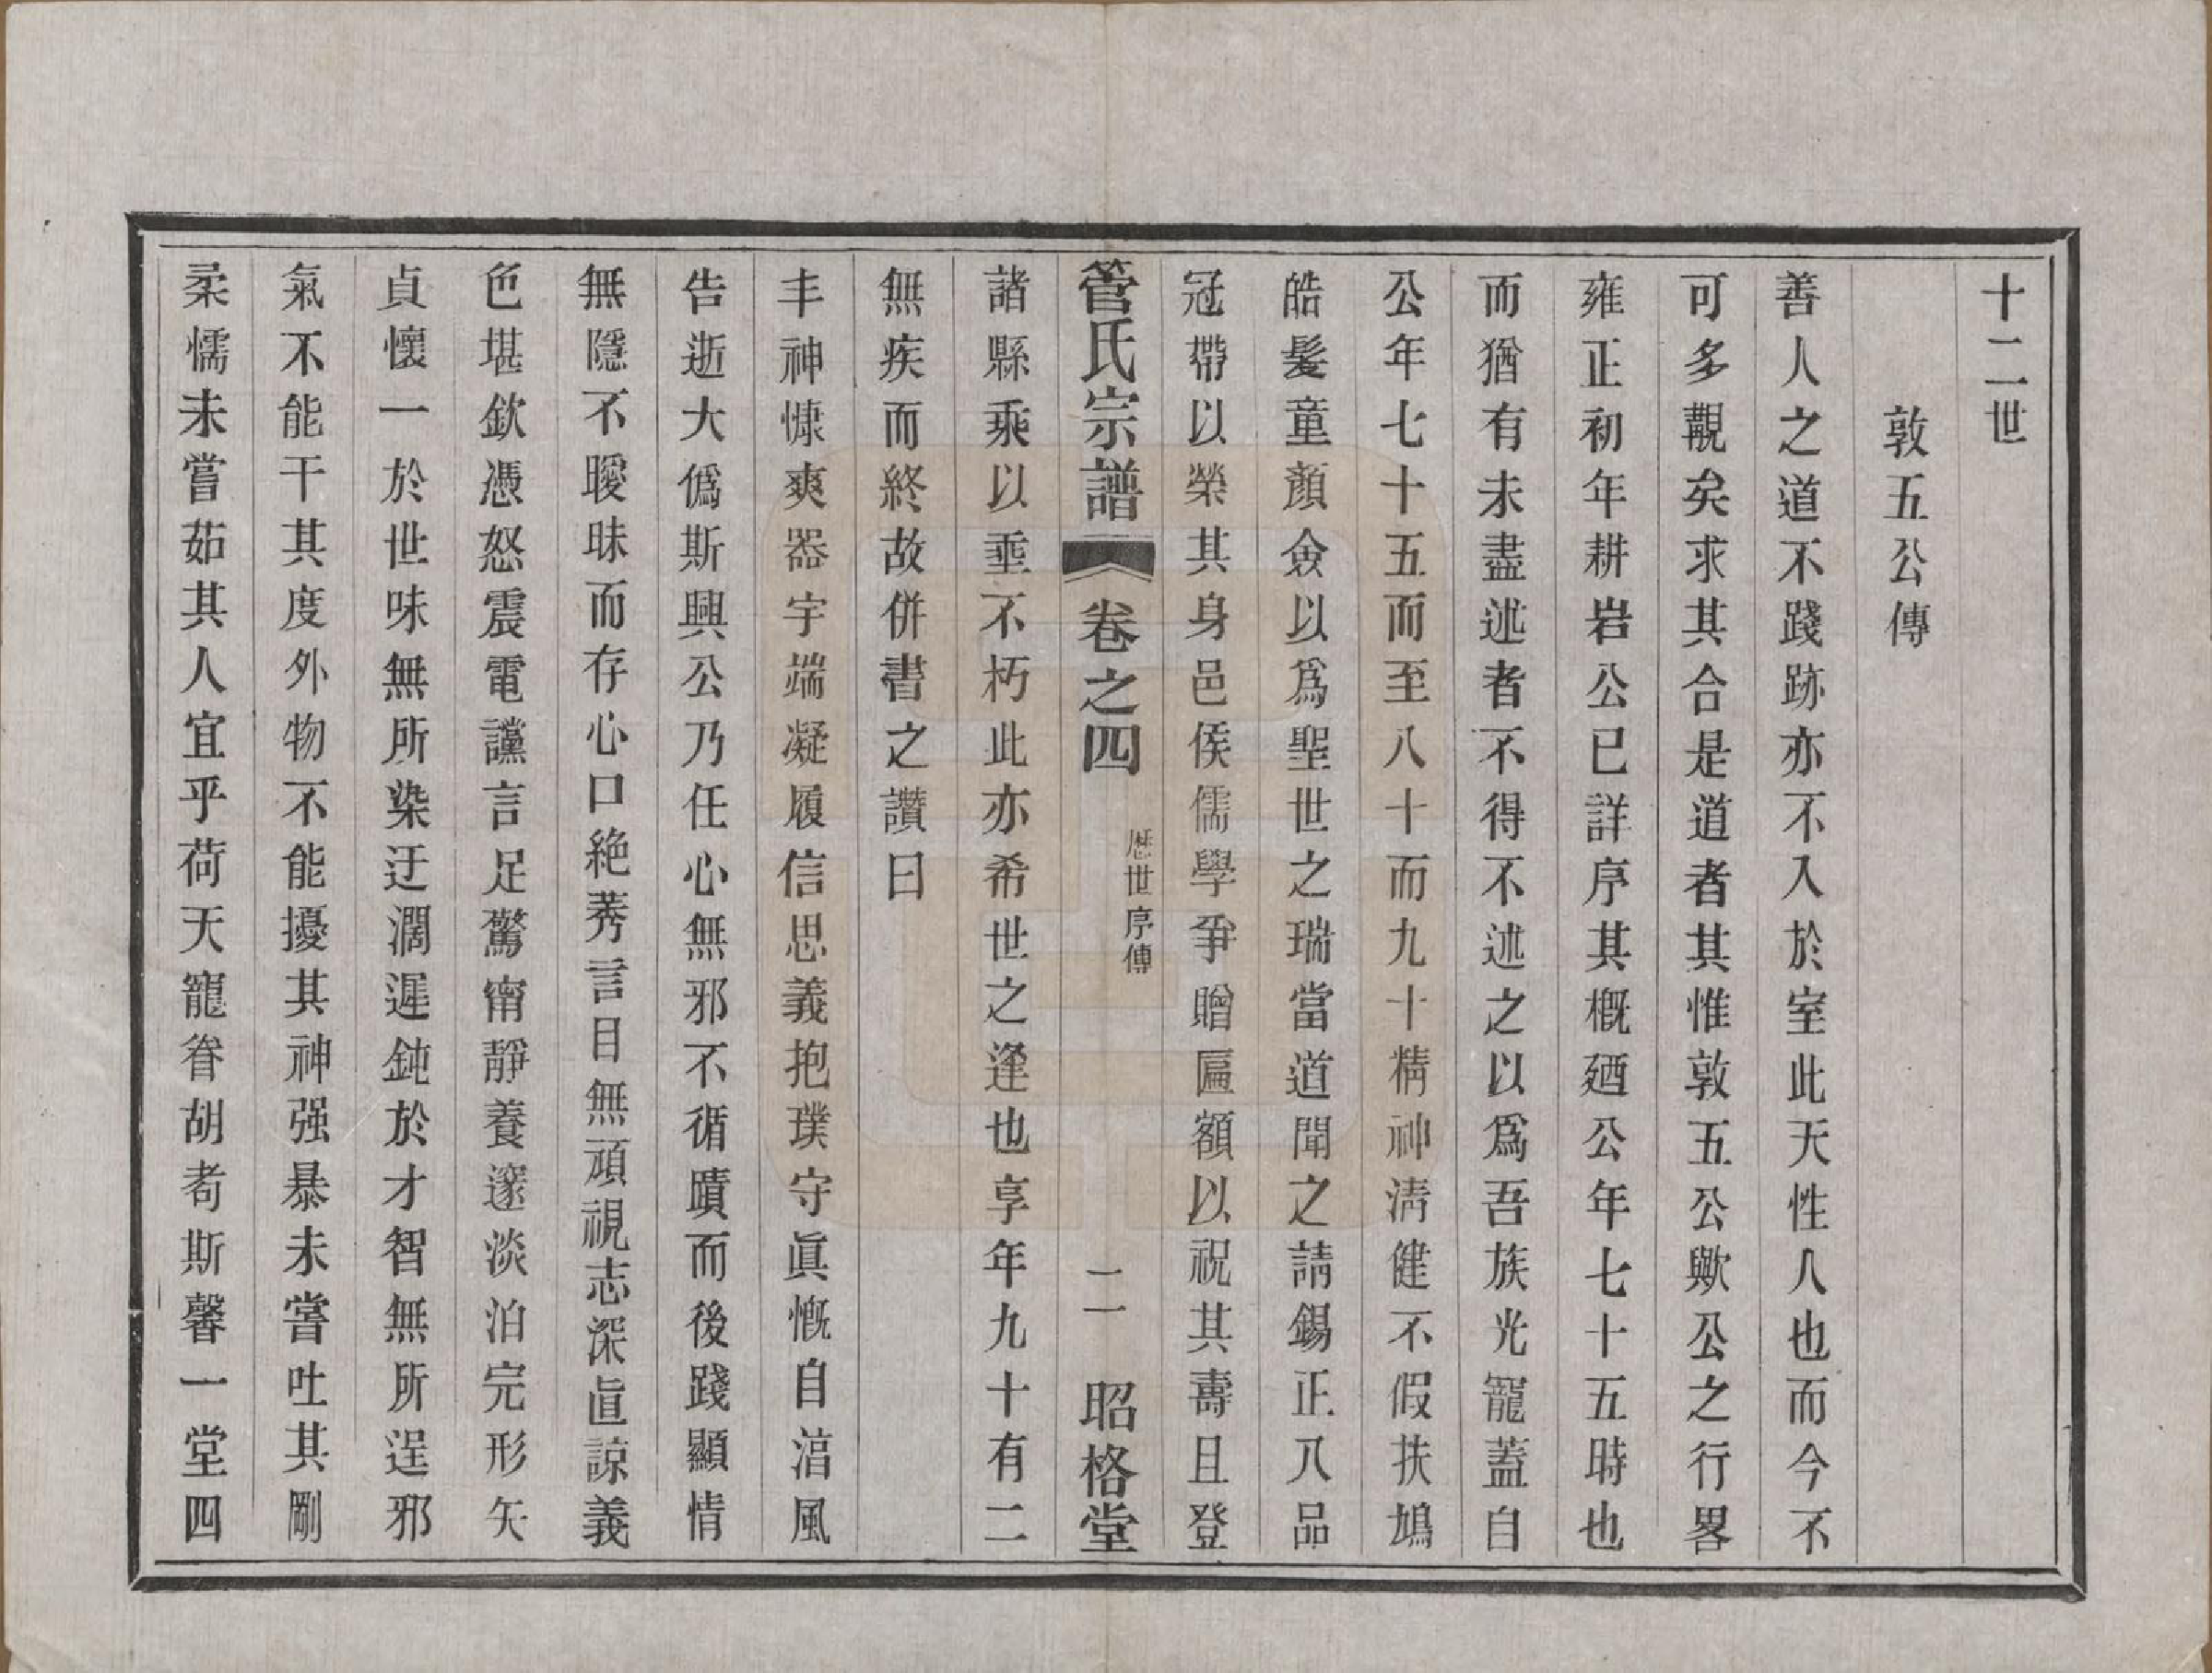 十二世
敦五公傳
善人之道不踐跡亦不入於室此天性人也而今不
可多覯矣求其合是道者其惟敦五公歟公之行畧
雍正初年耕岩公已詳序其概廼公年七十五時也
而猶有未盡述者不得不述之以爲吾族光寵蓋自
公年七十五而至八十而九十精神淸健不假扶鳩
皓髮童顏僉以爲聖世之瑞當道聞之請錫正八品
冠帶以榮其身邑侯儒學爭贈匾額以祝其壽且登
菅氏宗譜 卷之四 歷世序傳 二 昭格堂
諸縣乘以垂不朽此亦希世之逢也享年九十有二
無疾而終故併書之讚曰
丰神慷爽器宇端凝履信思義抱璞守眞慨自湻風
告逝大僞斯興公乃任心無邪不循蹟而後踐顯情
無隱不曖昧而存心口絶莠言目無頑視志深眞諒義
色堪欽憑怒震電讜言足驚甯靜養邃淡泊完形矢
貞懷一於世味無所染迂濶遲鈍於才智無所逞邪
氣不能干其度外物不能擾其神强暴未嘗吐其剛
柔懦未嘗茹其人宜乎荷天寵眷胡耇斯馨一堂四